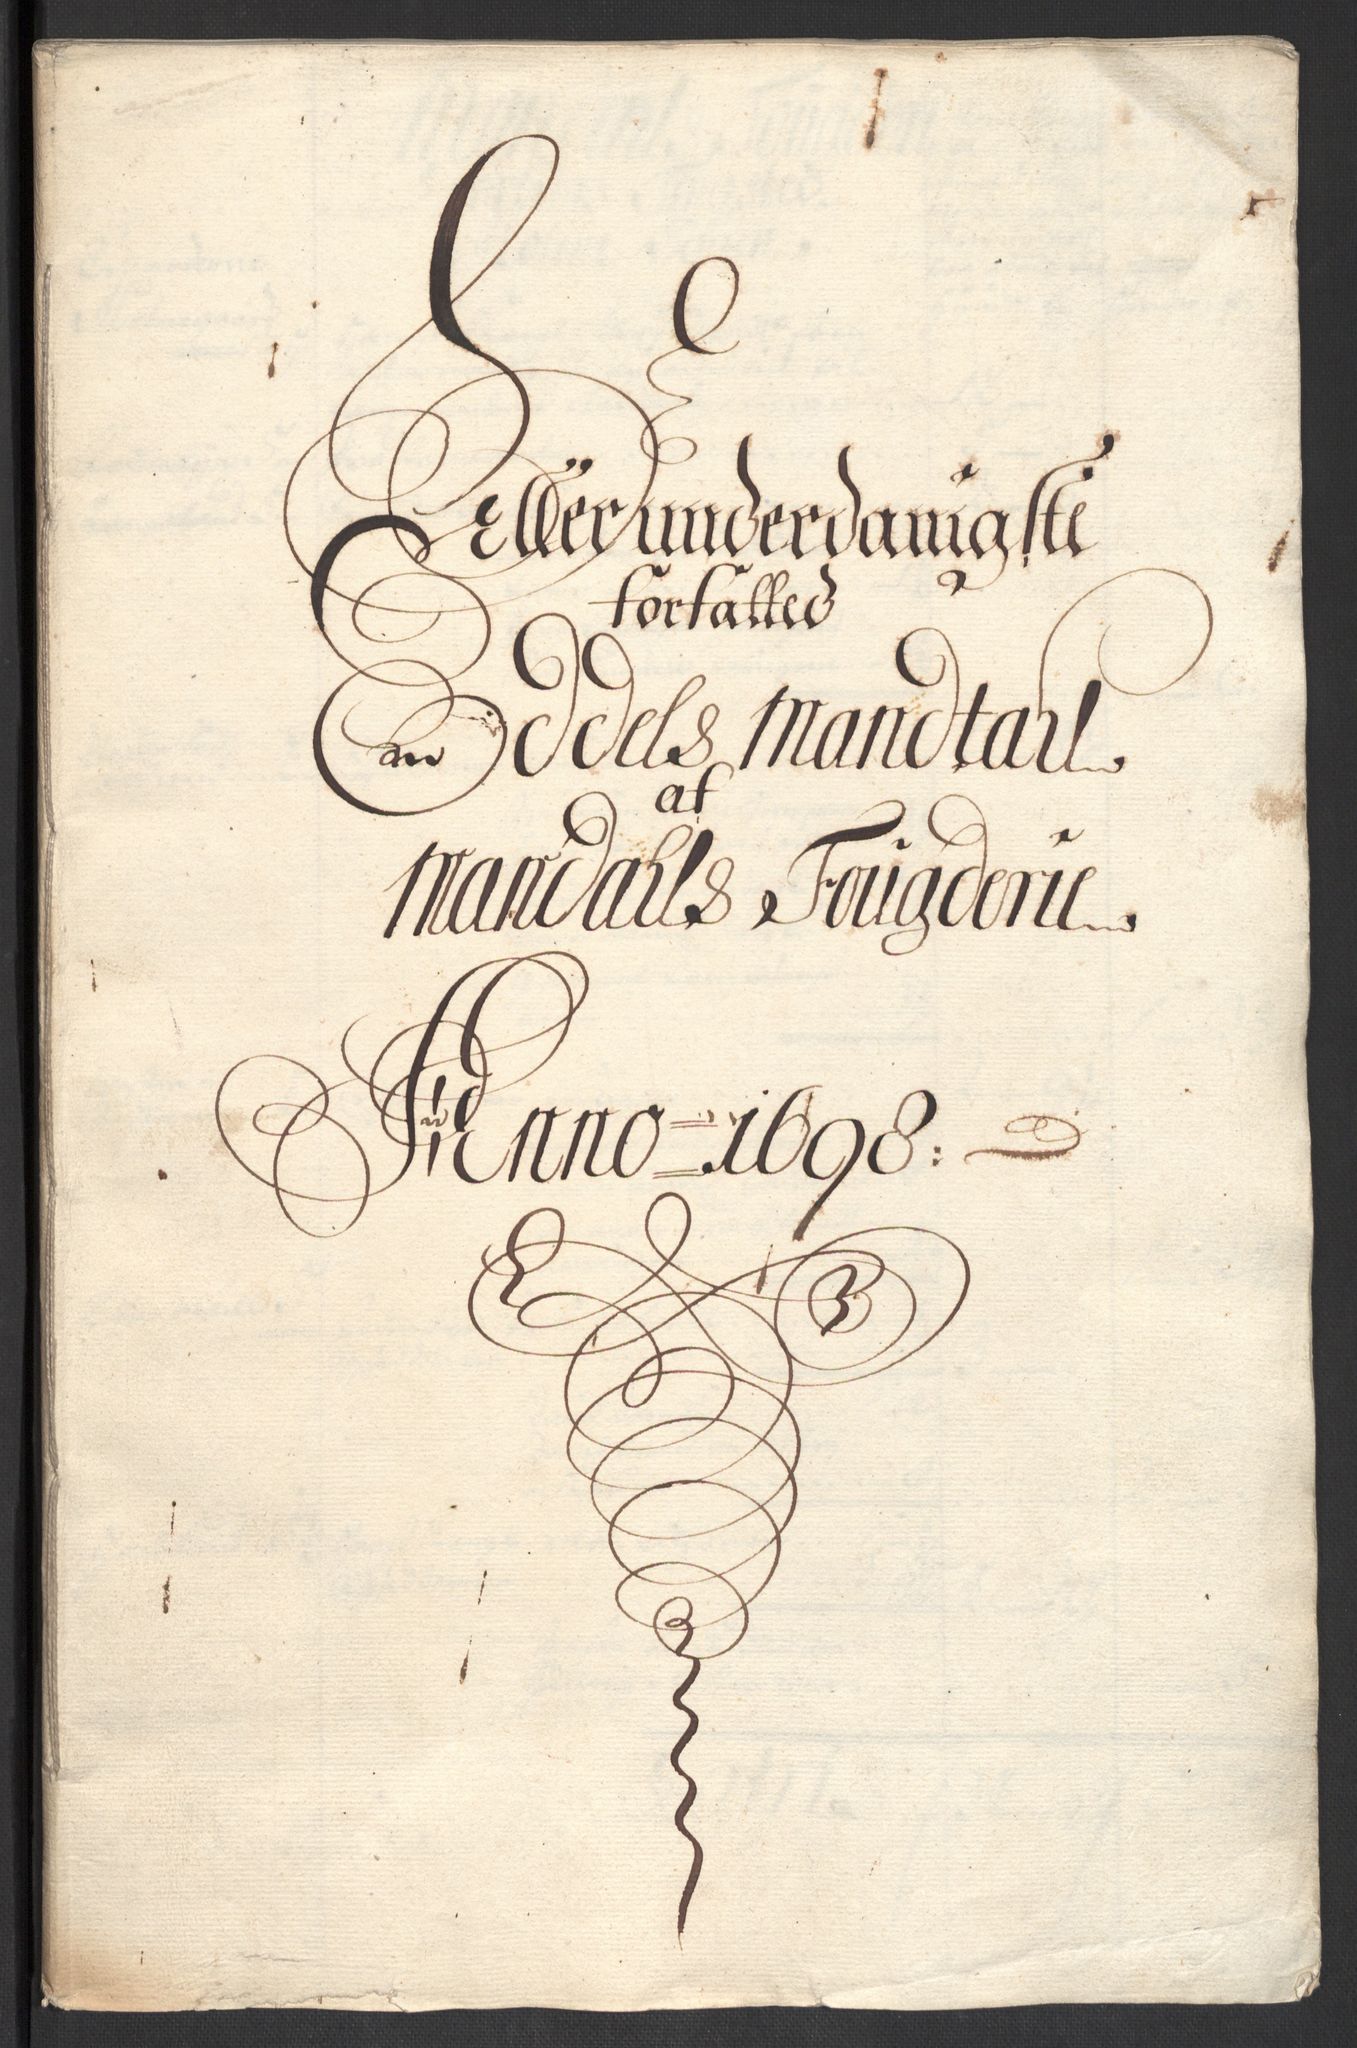 Aller underdanigste
forfatted
Oddels Mandtahl
af
Mandahls Fougderie
Anno 1698: